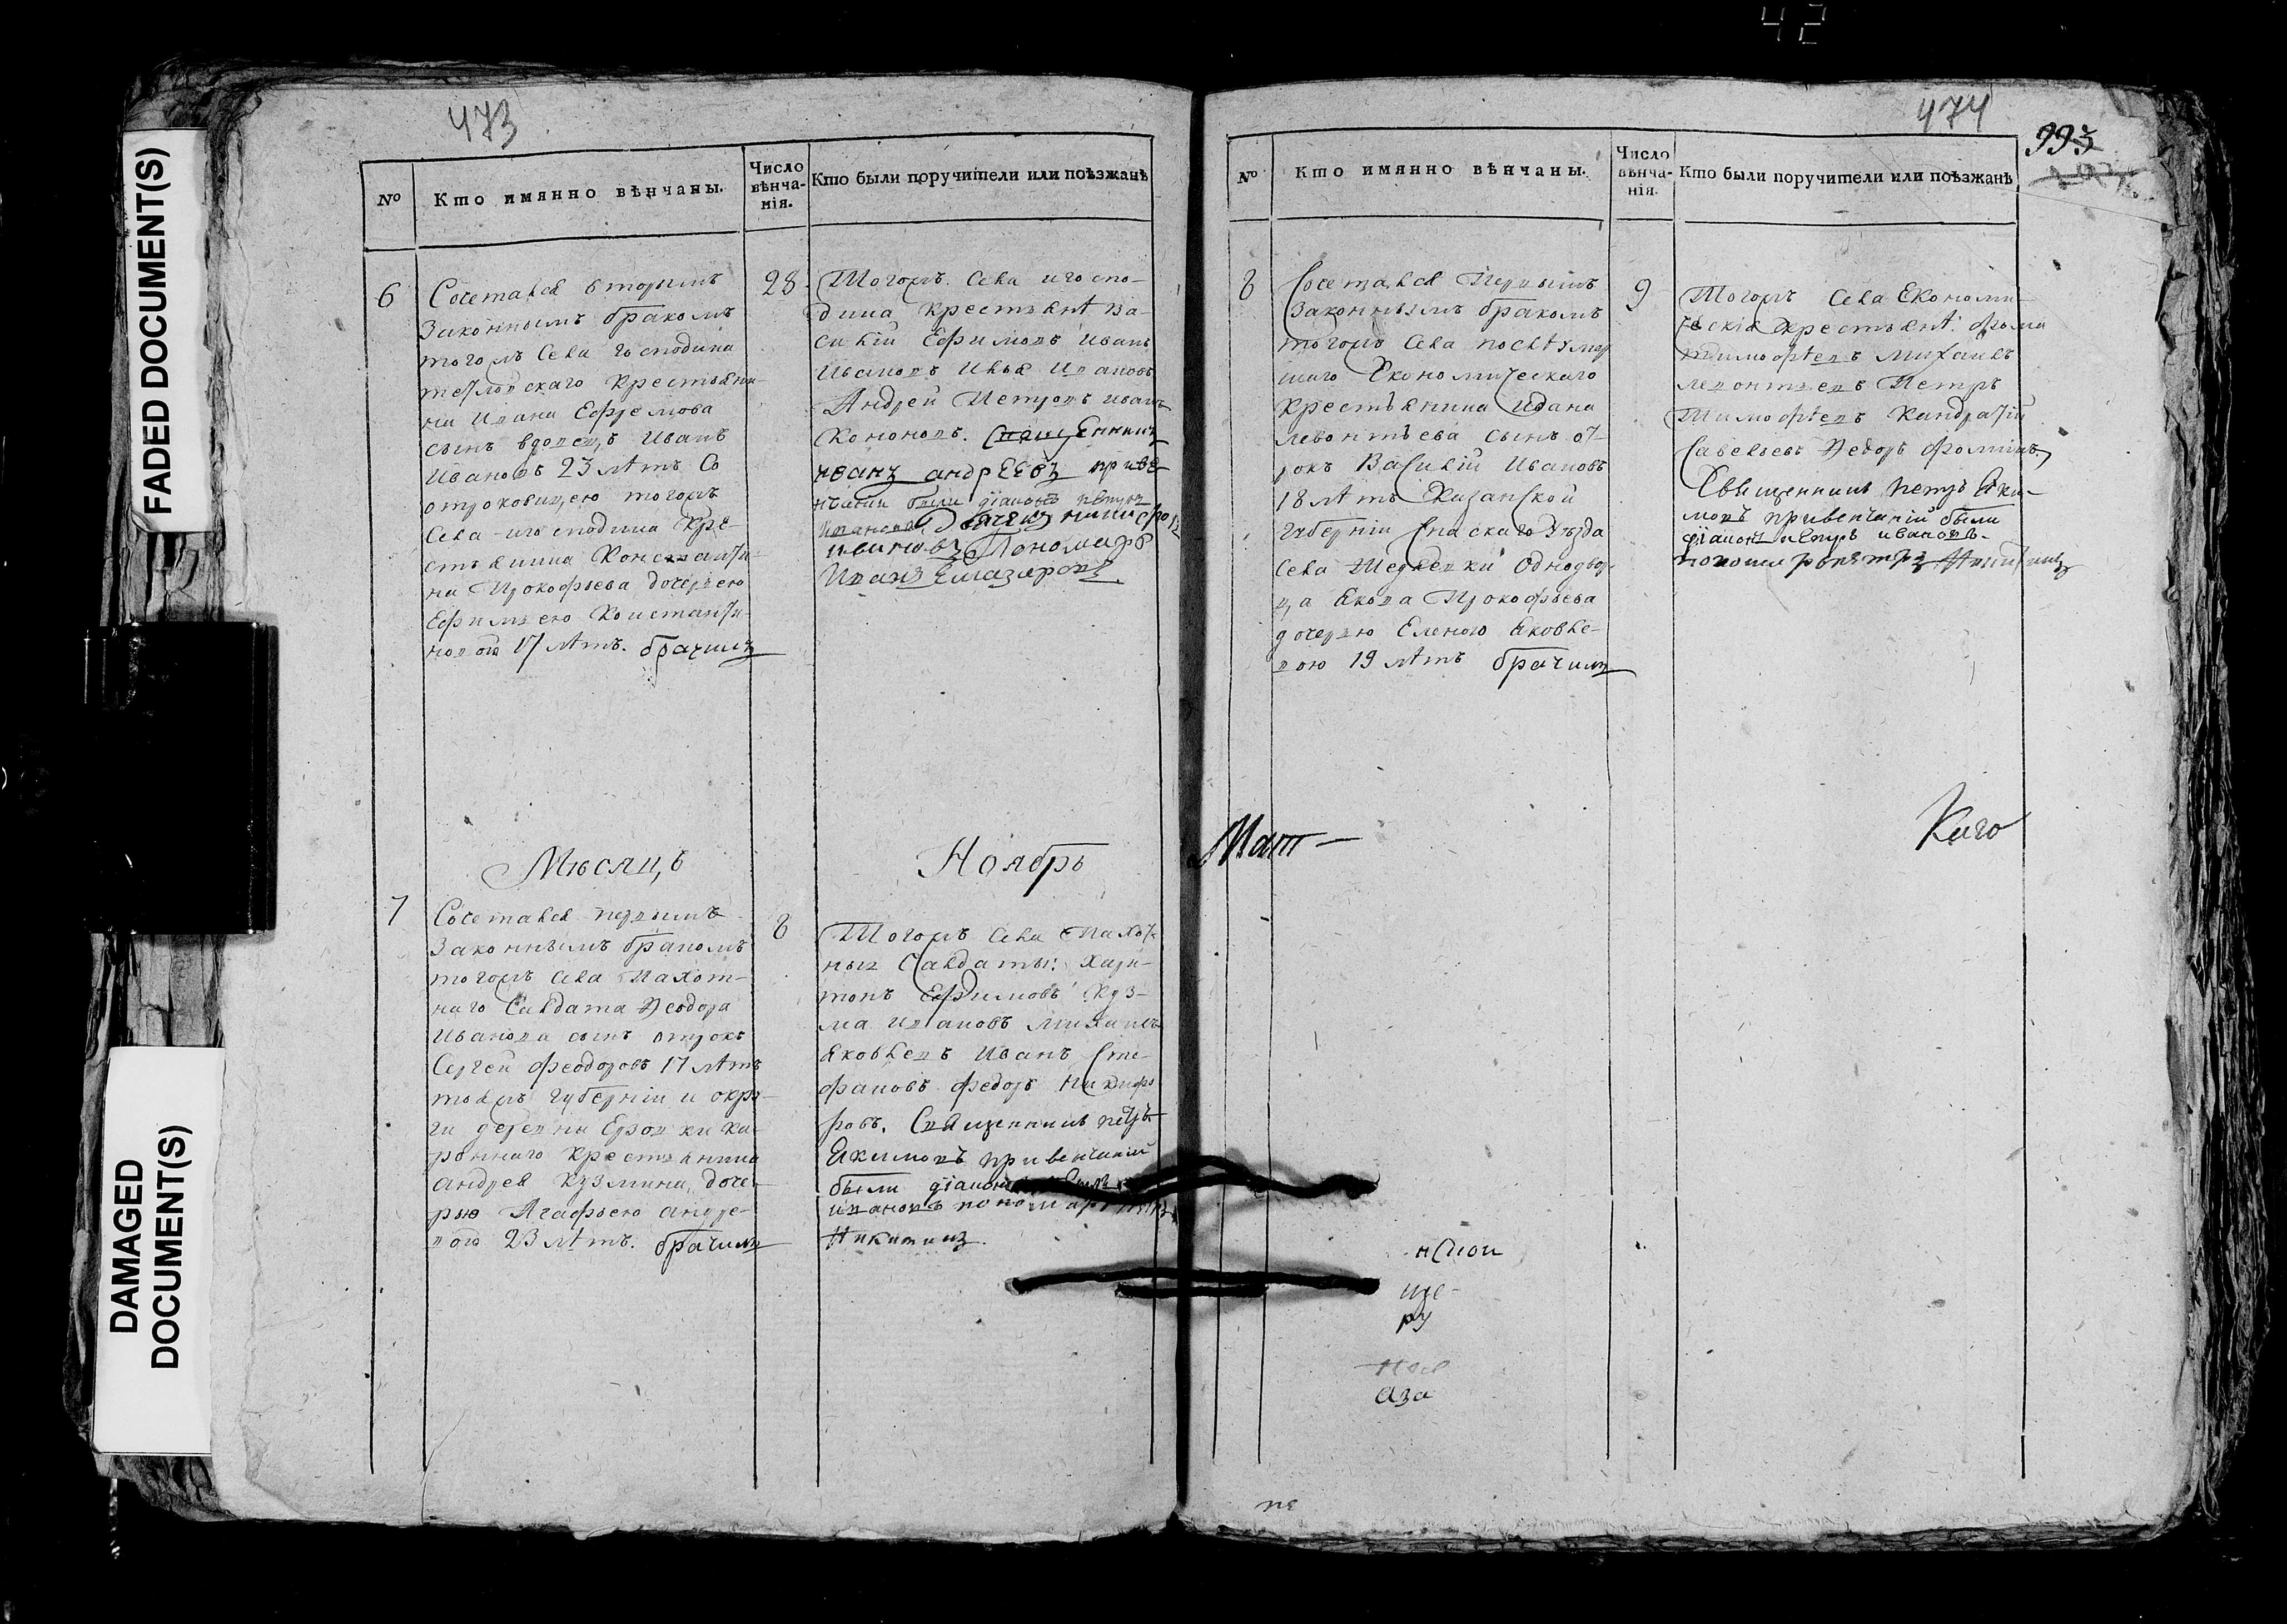 42
FADED DOCUMENT(S)
DAMAGED
DOCUMENT(S)
473
№
Кто имянно вѣнчаны.
Число
вѣнча-
нія.
Кто были поручители или поѣзжанѣ
6
Сочетался вторымъ
законнымъ бракомъ
тогожъ села господина
крестьяни-
на Ивана Ефремова
сынъ вдовецъ Иванъ
Ивановъ 23 лѣтъ Со
отроковицею тогожъ
села и господина кре-
стьянина Константи-
на Прокофьева дочерью
Ефимьею Константи-
новою 17 лѣтъ. брачилъ
28
Тогожъ села и госпо-
дина крестьянѣ Ва-
силій Ефимовъ Иванъ
Ивановъ Илья Ивановъ
Андрей Петровъ иванъ
Кононовъ. священникъ
иванъ андрЕЕвъ приве-
нчаніи были діаконъ петръ
ивановъ Дьячекъ
ивановъ Пономарь
Иванъ Елизаровъ
Мѣсяцъ
Ноябрь
7
Сочетался первымъ
законнымъ бракомъ
тогожъ села Пахот-
наго Салдата Ѳеодора
Иванова сынъ отрокъ
Сергей Феодоровъ 17 лѣтъ
тояжъ губерніи и окру-
ги деревни Еровки ка-
роннаго крестьянина
андрея Кузмина, доче-
рью Агафьею андре-
вою 23 лѣтъ. брачилъ
8
Тогожъ села Пахот-
ныя Салдаты: Хари-
тонъ Ефимовъ Куз-
ма ивановъ михаилъ
Яковлевъ Иванъ Сте-
фановъ федоръ Никифо
ровъ. Священникъ петръ
Якимовъ привенчаніи
были діаконъ
ивановъ пономарь
Никитинъ
474
993
№
Кто имянно вѣнчаны.
Число
вѣнча-
нія.
Кто были поручители или поѣзжанѣ
8
Сочетался Первымъ
Законнымъ бракомъ
тогожъ села послѣ умер
шаго Економическаго
крестьянина Ивана
левонтьева сынъ от-
рокъ Василій Ивановъ
18 лѣтъ Казанской
губерніи Спаскаго уѣзда
села Шервеки Однодвор-
ца Якова Прокофьева
дочерью Еленою Яковле-
вою 19 лѣтъ брачилъ
9
Тогожъ села Економи-
ческія крестьянѣ: фома
тимофѣевъ Михаилъ
левонтьевъ Петръ
Тимофѣевъ Кандратій
Савельевъ Ѳедоръ Фоминъ
Священникъ петръ Яки-
мовъ привенчаніи были
діаконъ петръ ивановъ
пономарь петръ Никитинъ
Мат-
Каго
ще-
ру
аза